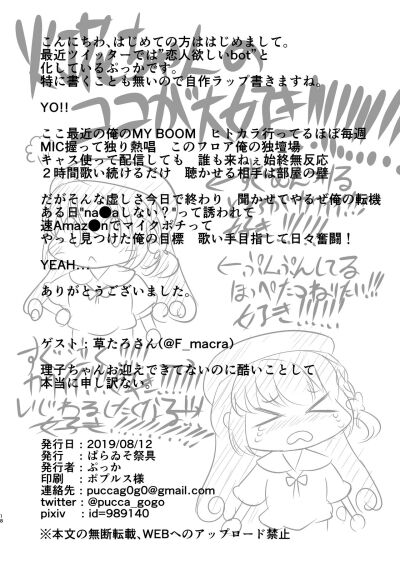 こんにちわ、はじめての方ははじめまして。
最近ツイッターでは"恋人欲しいbot"と
化しているぷっかです。
特に書くことも無いので自作ラップ書きますね。
YO!!
ここ最近の俺のMY BOOM　ヒトカラ行ってるほぼ毎週
MIC握って独り熱唱　このフロア俺の独壇場
キャス使って配信しても　誰も来ねぇ始終無反応
２時間歌い続けるだけ　聴かせる相手は部屋の壁
だがそんな虚しさ今日で終わり　聞かせてやるぜ俺の転機
ある日"na●aしない？"って誘われて
速Amaz●nでマイクポチって
やっと見つけた俺の目標　歌い手目指して日々奮闘！
YEAH…
ありがとうございました。
←ぷんぷんしてる
ほっぺたつねりたい!!!
好き!!!!
ゲスト：草たろさん(@F_macra)
理子ちゃんお迎えできてないのに酷いことして
本当に申し訳ない。
発行日：2019/08/12
発行　：ばらゐそ祭具
発行者：ぷっか
印刷　：ポプルス様
連絡先：puccag0g0@gmail.com
twitter：@pucca_gogo
pixiv　：id=989140
※本文の無断転載、WEBへのアップロード禁止
18